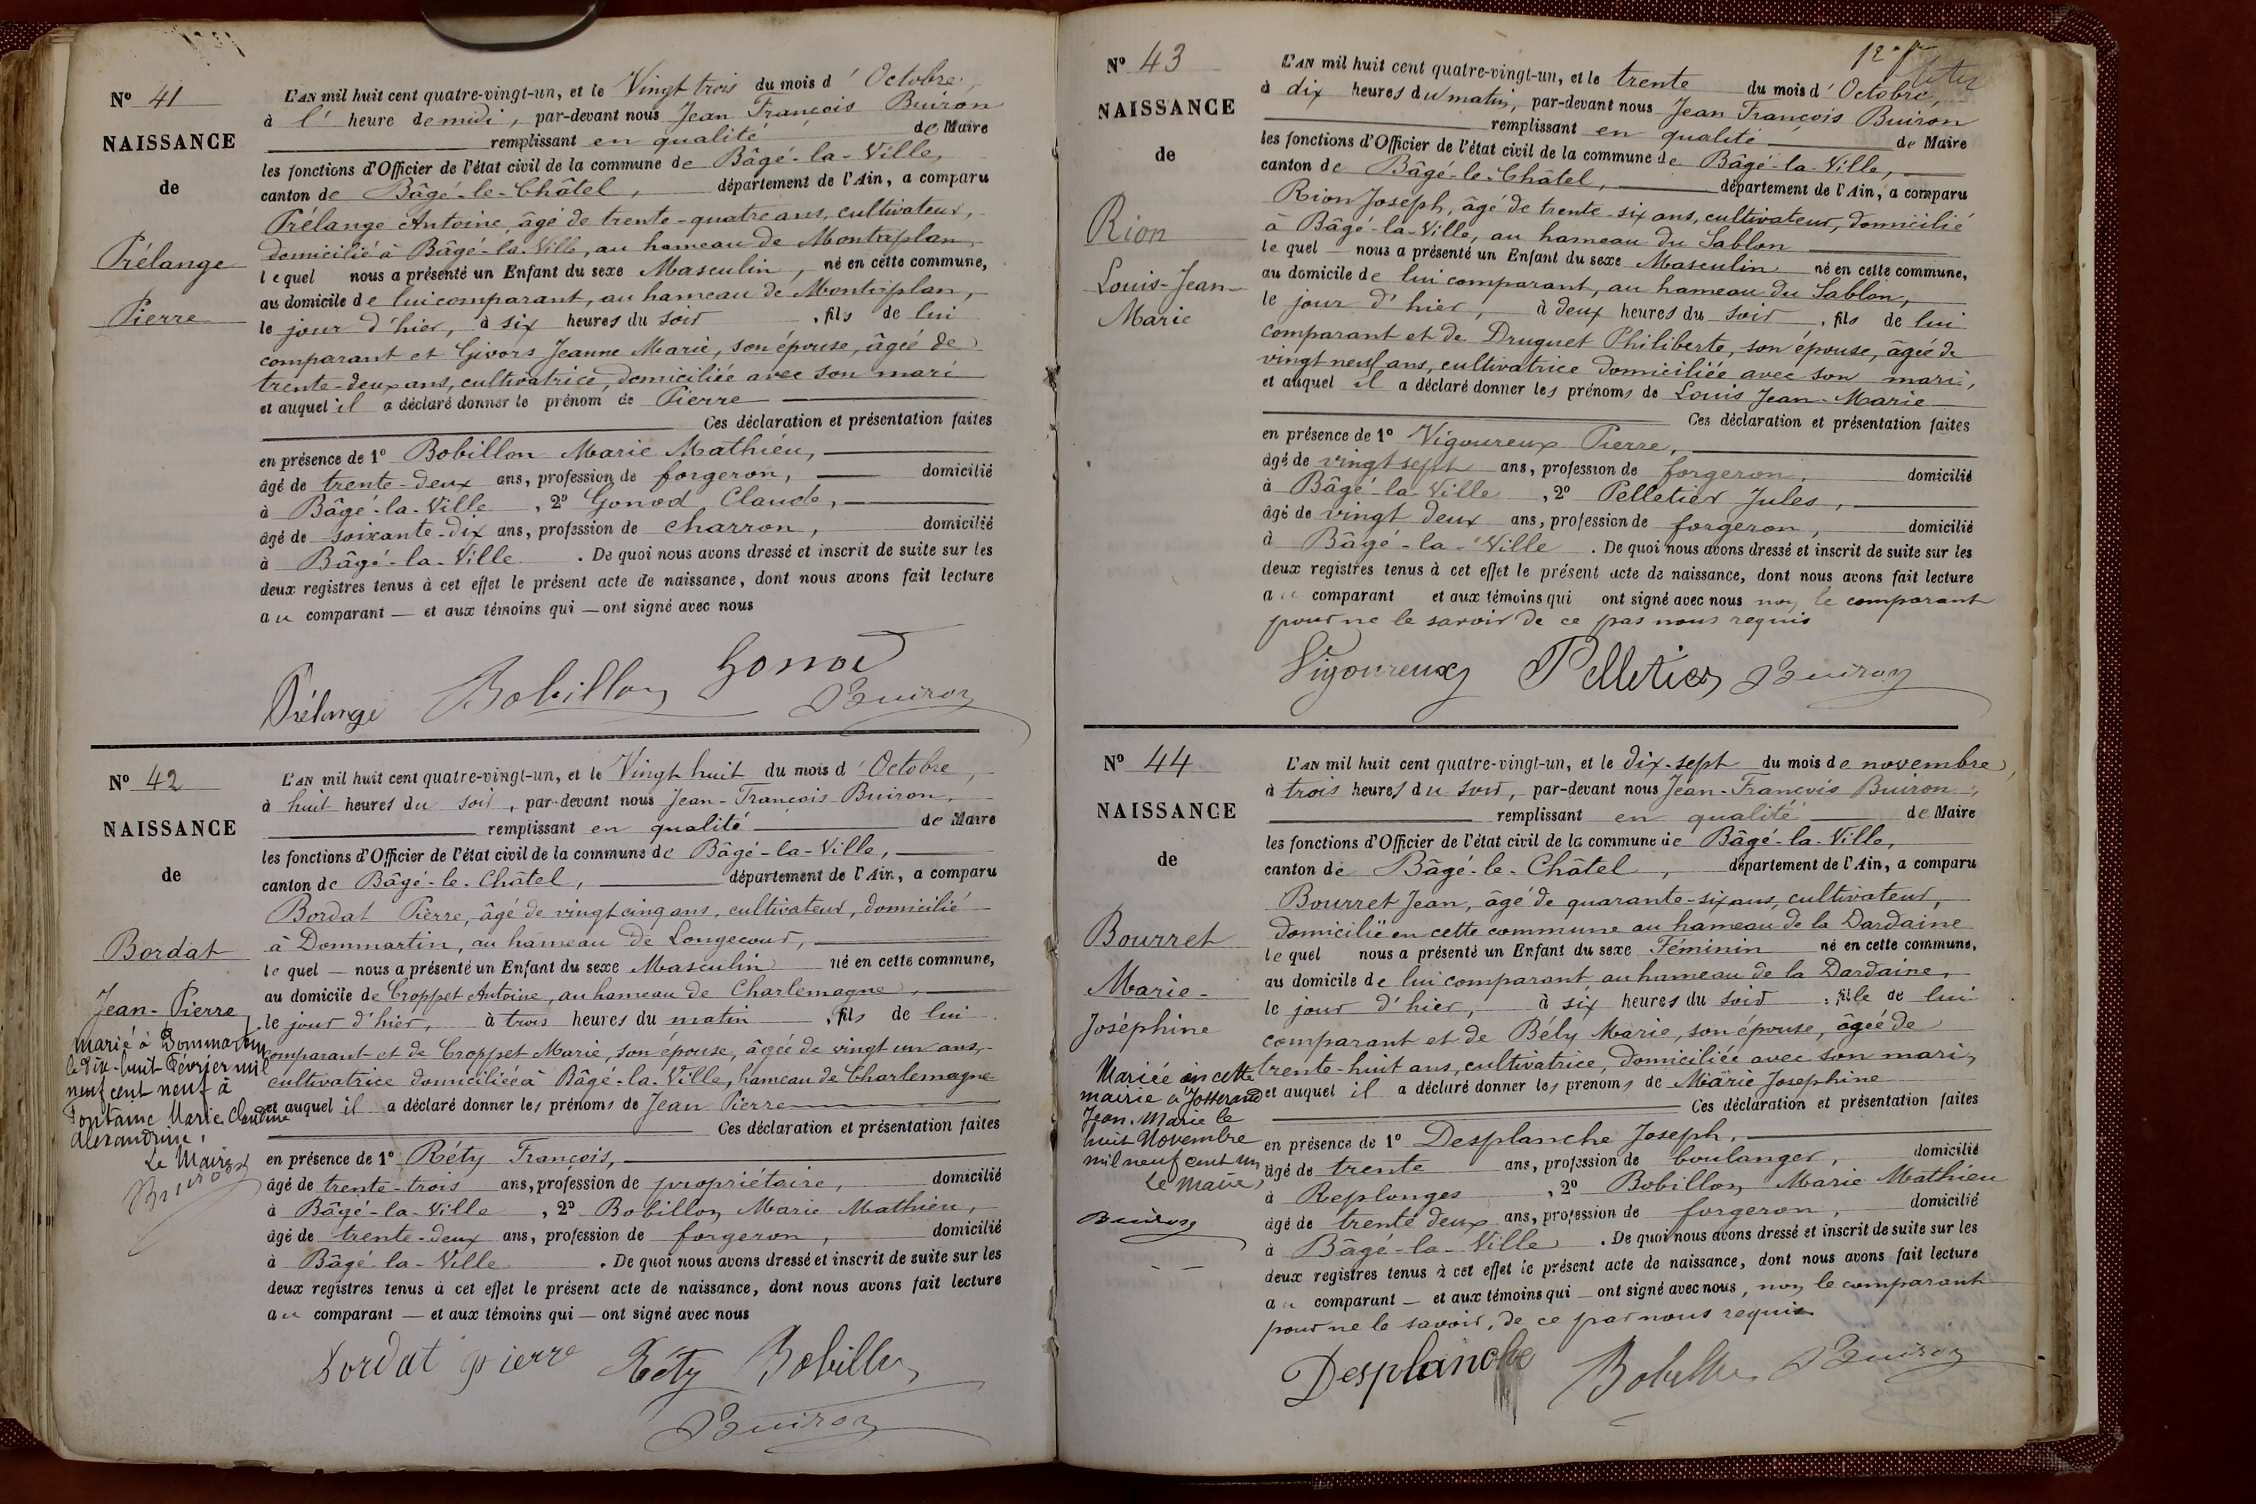 Nº 41
NAISSANCE
de
Prélange
Pierre
L'AN mil huit cent quatre-vingt-un, et le Vingt trois du mois d' Octobre,
à l' heure de midi, par-devant nous Jean François Buiron
remplissant en qualité de Maire
les fonctions d'Officier de l'état civil de la commune de Bâgé-la-Ville,
canton de Bâgé-le-Châtel, département de l'Ain, a comparu
Prélange Antoine, âgé de trente-quatre ans, cultivateur,
domicilié à Bâgé-la-Ville, au hameau de Montaplan,
lequel nous a présenté un Enfant du sexe Masculin, né en cette commune,
au domicile de lui comparant, au hameau de Montaplan,
le jour d'hier, à six heures du soir, fils de lui
comparant et Givors Jeanne Marie, son épouse, âgée de
trente-deux ans, cultivatrice, domiciliée avec son mari
et auquel il a déclaré donner le prénom de Pierre
Ces déclaration et présentation faites
en présence de 1º Bobillon Marie Mathieu,
âgé de trente-deux ans, profession de forgeron, domicilié
à Bâgé-la-Ville, 2º Gonod Claude,
âgé de soixante-dix ans, profession de charron, domicilié
à Bâgé-la-Ville. De quoi nous avons dressé et inscrit de suite sur les
deux registres tenus à cet effet le présent acte de naissance, dont nous avons fait lecture
au comparant — et aux témoins qui — ont signé avec nous
Prélange Bobillon Gonod
Buiron
Nº 42
NAISSANCE
de
Bordat
Jean-Pierre
Marié à Dommartin
le dix-huit Février mil
neuf cent neuf à
Fontaine Marie Claudine
Alexandrine.
Le Maire
Buiron
L'AN mil huit cent quatre-vingt-un, et le Vingt huit du mois d' Octobre,
à huit heures du soir, par-devant nous Jean-François Buiron,
remplissant en qualité de Maire
les fonctions d'Officier de l'état civil de la commune de Bâgé-la-Ville,
canton de Bâgé-le-Châtel, département de l'Ain, a comparu
Bordat Pierre, âgé de vingt cinq ans, cultivateur, domicilié
à Dommartin, au hameau de Longecour,
lequel — nous a présenté un Enfant du sexe Masculin né en cette commune,
au domicile de Croppet Antoine, au hameau de Charlemagne,
le jour d'hier, à trois heures du matin, fils de lui
comparant et de Croppet Marie, son épouse, âgée de vingt un ans,
cultivatrice domiciliée à Bâgé-la-Ville, hameau de Charlemagne
et auquel il a déclaré donner les prénoms de Jean Pierre
Ces déclaration et présentation faites
en présence de 1º Réty François,
âgé de trente-trois ans, profession de propriétaire, domicilié
à Bâgé-la-Ville, 2º Bobillon Marie Mathieu,
âgé de trente-deux ans, profession de forgeron, domicilié
à Bâgé-la-Ville. De quoi nous avons dressé et inscrit de suite sur les
deux registres tenus à cet effet le présent acte de naissance, dont nous avons fait lecture
au comparant — et aux témoins qui — ont signé avec nous
Bordat pierre Réty Bobillon
Buiron
Nº 43
NAISSANCE
de
Rion
Louis-Jean-
Marie
L'AN mil huit cent quatre-vingt-un, et le trente du mois d' Octobre,
à dix heures du matin, par-devant nous Jean François Buiron
remplissant en qualité de Maire
les fonctions d'Officier de l'état civil de la commune de Bâgé-la-Ville,
canton de Bâgé-le-Châtel, département de l'Ain, a comparu
Rion Joseph, âgé de trente-six ans, cultivateur, domicilié
à Bâgé-la-Ville, au hameau du Sablon
lequel nous a présenté un Enfant du sexe Masculin né en cette commune,
au domicile de lui comparant, au hameau du Sablon,
le jour d'hier, à deux heures du soir, fils de lui
comparant et de Druguet Philiberte, son épouse, âgée de
vingt neuf ans, cultivatrice domiciliée avec son mari,
et auquel il a déclaré donner les prénoms de Louis Jean-Marie
Ces déclaration et présentation faites
en présence de 1º Vigoureux Pierre,
âgé de vingt sept ans, profession de forgeron, domicilié
à Bâgé-la-Ville, 2º Pelletier Jules,
âgé de vingt deux ans, profession de forgeron, domicilié
à Bâgé-la-Ville. De quoi nous avons dressé et inscrit de suite sur les
deux registres tenus à cet effet le présent acte de naissance, dont nous avons fait lecture
au comparant et aux témoins qui ont signé avec nous non le comparant
pour ne le savoir de ce par nous requis
Vigoureux Pelletier Buiron
Nº 44
NAISSANCE
de
Bourret
Marie-
Joséphine
Mariée en cette
mairie à Josserand
Jean-Marie le
huit Novembre
mil neuf cent un
Le Maire,
Buiron
L'AN mil huit cent quatre-vingt-un, et le dix-sept du mois de novembre,
à trois heures du soir, par-devant nous Jean-François Buiron,
remplissant en qualité de Maire
les fonctions d'Officier de l'état civil de la commune de Bâgé-la-Ville,
canton de Bâgé-le-Châtel, département de l'Ain, a comparu
Bourret Jean, âgé de quarante-six ans, cultivateur,
domicilié en cette commune au hameau de la Dardaine
lequel nous a présenté un Enfant du sexe Féminin né en cette commune,
au domicile de lui comparant au hameau de la Dardaine,
le jour d'hier, à six heures du soir, fille de lui
comparant et de Bély Marie, son épouse, âgée de
trente-huit ans, cultivatrice, domiciliée avec son mari,
et auquel il a déclaré donner les prénoms de Marie Joséphine
Ces déclaration et présentation faites
en présence de 1º Desplanche Joseph,
âgé de trente ans, profession de boulanger, domicilié
à Replonges, 2º Bobillon Marie Mathieu
âgé de trente deux ans, profession de forgeron, domicilié
à Bâgé-la-Ville. De quoi nous avons dressé et inscrit de suite sur les
deux registres tenus à cet effet le présent acte de naissance, dont nous avons fait lecture
au comparant — et aux témoins qui — ont signé avec nous, non le comparant
pour ne le savoir, de ce par nous requis
Desplanche Bobillon Buiron